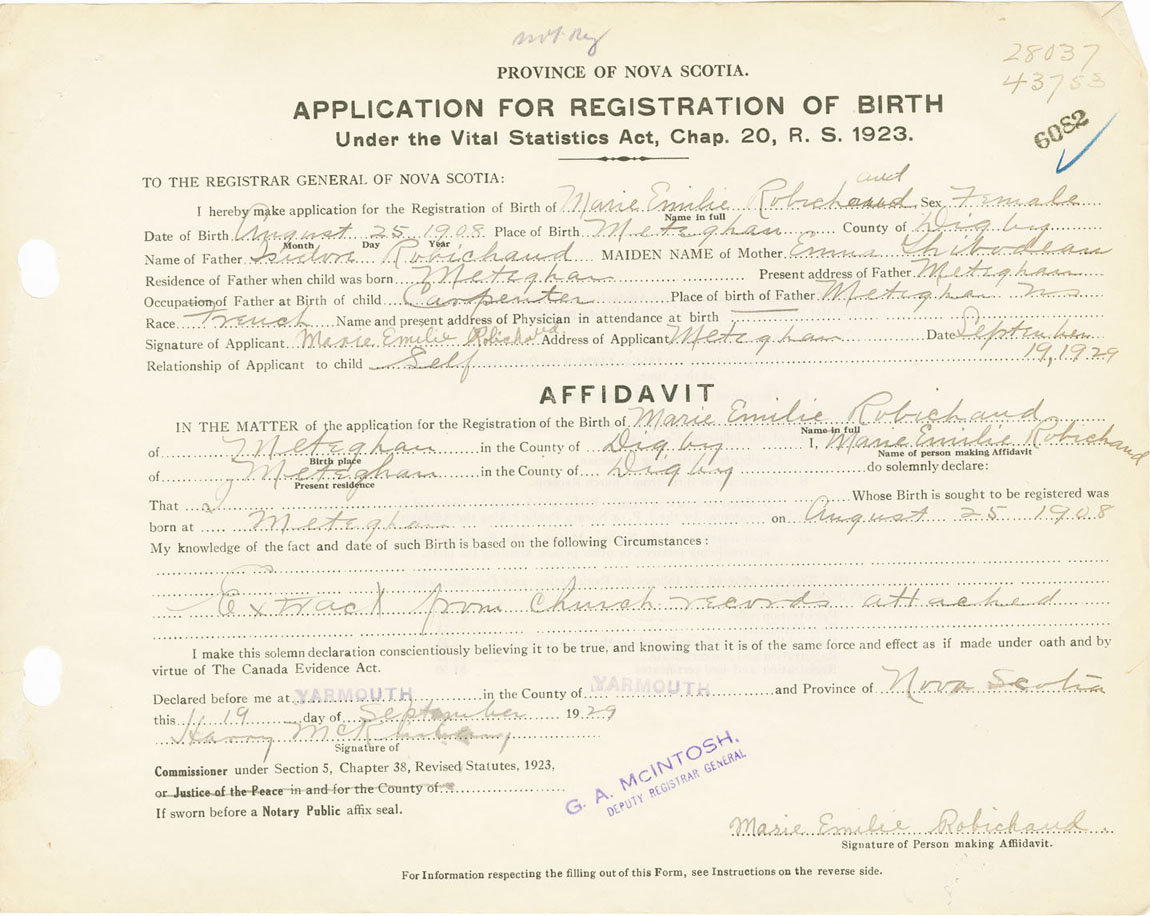 not Reg
28037
43753
PROVINCE OF NOVA SCOTIA.
APPLICATION FOR REGISTRATION OF BIRTH
Under the Vital Statistics Act, Chap. 20, R. S. 1923.
6082
TO THE REGISTRAR GENERAL OF NOVA SCOTIA:
aud
I hereby make application for the Registration of Birth of Marie Emilie Robichaud Sex Female
Name in full
Date of Birth August 25 1908 Place of Birth Meteghan County of Digby
Month Day Year
Name of Father Isidore Robichaud MAIDEN NAME of Mother Emma Thibodeau
Residence of Father when child was born Meteghan Present address of Father Meteghan
Occupation of Father at Birth of child Carpenter Place of birth of Father Meteghan NS
Race French Name and present address of Physician in attendance at birth
Signature of Applicant Marie Emilie Robichaud Address of Applicant Meteghan Date September
Relationship of Applicant to child Self 19, 1929
AFFIDAVIT
IN THE MATTER of the application for the Registration of the Birth of Marie Emilie Robichaud
Name in full
of Meteghan in the County of Digby I, Marie Emilie Robichaud
Birth place Name of person making Affidavit
of Meteghan in the County of Digby do solemnly declare:
Present residence
That I Whose Birth is sought to be registered was
born at Meteghan on August 25 1908
My knowledge of the fact and date of such Birth is based on the following Circumstances :
Extract from church records attached
I make this solemn declaration conscientiously believing it to be true, and knowing that it is of the same force and effect as if made under oath and by
virtue of The Canada Evidence Act.
Declared before me at YARMOUTH in the County of YARMOUTH and Province of Nova Scotia
this 19 day of September 1929
Harry
Signature of
Commissioner under Section 5, Chapter 38, Revised Statutes, 1923,
or Justice of the Peace in and for the County of
If sworn before a Notary Public affix seal.
G. A. MCINTOSH,
DEPUTY REGISTRAR GENERAL
Marie Emilie Robichaud
Signature of Person making Affidavit.
For Information respecting the filling out of this Form, see Instructions on the reverse side.